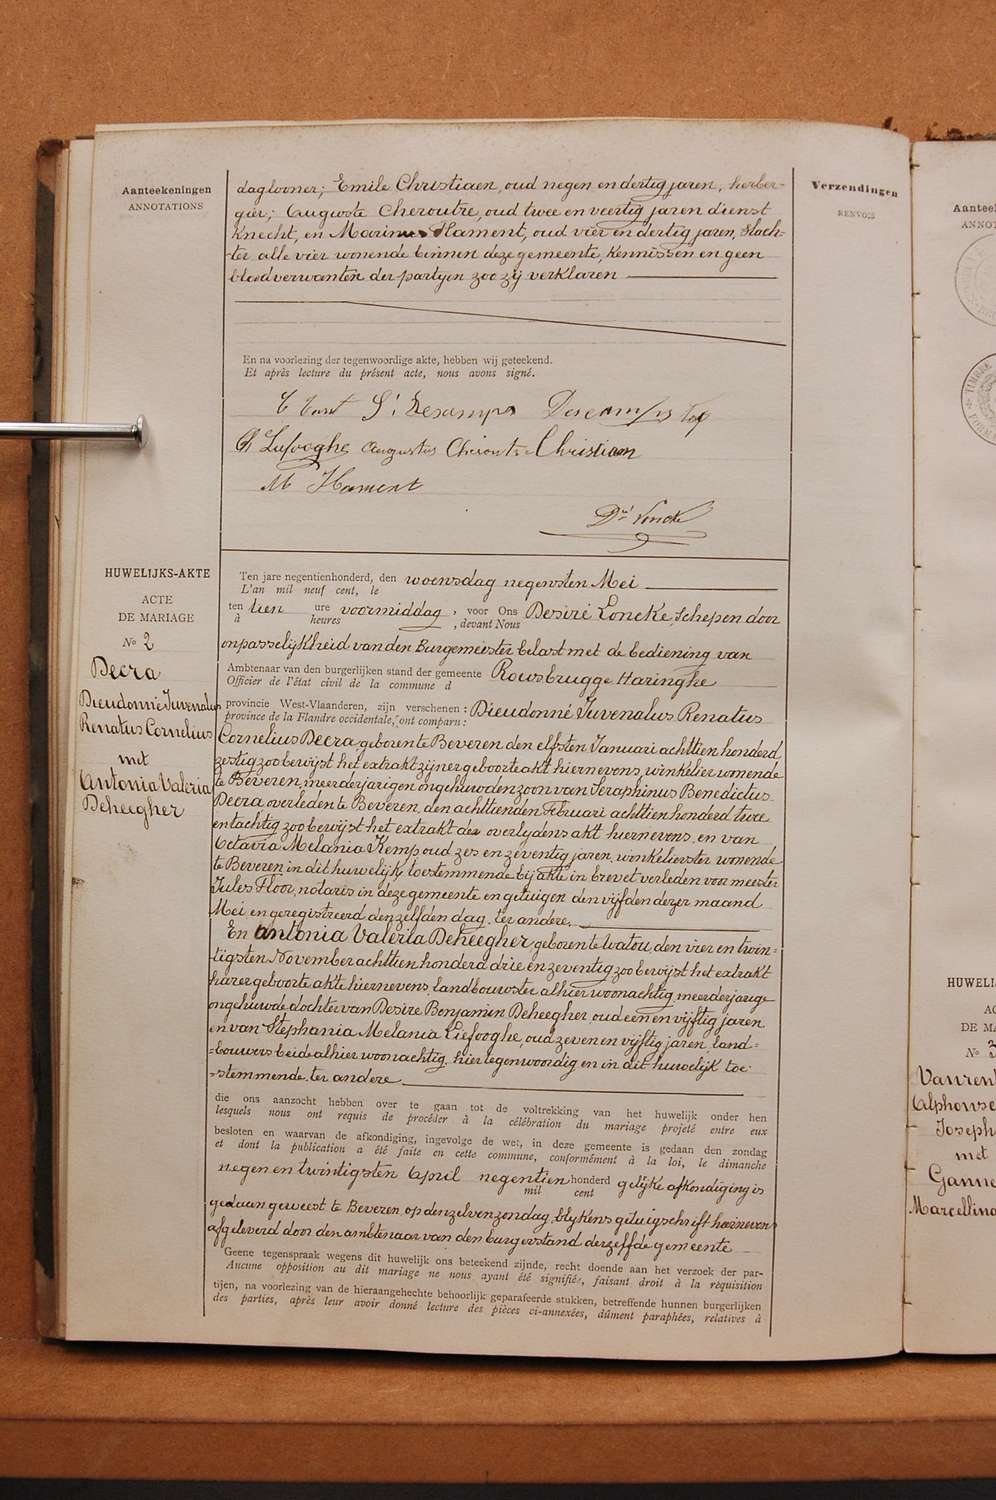 Aanteekeningen
ANNOTATIONS
Verzendingen
RENVOIS
daglooner; Emile Christiaen, oud negen en dertig jaren, herber-
gier; Auguste Cheroutre, oud twee en veertig jaren dienst
knecht, en Marinus Hament, oud vier en dertig jaren, Slach-
-ter alle vier wonende binnen deze gemeente, kennissen en geen
bloedverwanten der partyen zoo zij verklaren
En na voorlezing der tegenwoordige akte, hebben wij geteekend.
Et après lecture du présent acte, nous avons signé.
Descamps
Lefooghe Augustus Christiaen
M Hament
HUWELIJKS-AKTE
ACTE
DE MARIAGE
No 2
Decra
Dieudonné Juvenalus
Renatus Cornelius
met
Antonia Valeria
Deheegher
Ten jare negentienhonderd, den woensdag negensten Mei
L'an mil neuf cent, le
ten tien ure voormiddag, voor Ons Desiré Loncke, Schepen door
à heures , devant Nous
onpasselijkheid van den Burgemeester belast met de bediening van
Ambtenaar van den burgerlijken stand der gemeente Rousbrugge Haringhe
Officier de l'état civil de la commune d
provincie West-Vlaanderen, zijn verschenen: Dieudonné Juvenalus Renatus
province de la Flandre occidentale, ont comparu:
Cornelius Decra geboren te Beveren den elfsten Januari achttien honderd
zestig zoo bewijst het extrakt zijner geboorteakt hiernevens, winkelier wonende
te Beveren, meerderjarigen ongehuwden zoon van Seraphinus Benedictus
Decra overleden te Beveren, den achttienden Februari achttien honderd twee
en tachtig zoo bewijst het extrakt des overlydens akt hiernevens, en van
Octavia Melania Kemp oud zes en zeventig jaren, winkelierster wonende
te Beveren in dit huwelijk toestemmende bij akte in brevet verleden voor meester
Jules Floor, notaris in deze gemeente en getuigen den vijfden dezer maand
Mei en geregistreerd denzelfden dag, ter andere.
En Antonia Valeria Deheegher geboren te Watou, den vier en twin-
-tigsten November achttien honderd drie en zeventig zoo bewijst het extrakt
harer geboorte akte hiernevens, landbouwster alhier woonachtig, meerderjarige
ongehuwde dochter van Desire Benjamin Deheegher, oud een en vijftig jaren
en van Stephania Melania Liefooghe, oud zeven en vijftig jaren, land=
=bouwers beide alhier woonachtig, hier tegenwoordig en in dit huwelijk toe-
=stemmende, ter andere
die ons aanzocht hebben over te gaan tot de voltrekking van het huwelijk onder hen
lesquels nous ont requis de procéder à la célébration du mariage projeté entre eux
besloten en waarvan de afkondiging, ingevolge de wet, in deze gemeente is gedaan den zondag
et dont la publication a été faite en cette commune, conformément à la loi, le dimanche
negen en twintigsten April negentien honderd gelijke afkondiging is
mil cent
gedaan geweest te Beveren, op denzelven zondag, blykens getuigschrift hiernevens
afgeleverd door den ambtenaar van den burgerstand derzelfde gemeente
Geene tegenspraak wegens dit huwelijk ons beteekend zijnde, recht doende aan het verzoek der par-
Aucune opposition au dit mariage ne nous ayant été signifiée, faisant droit à la réquisition
tijen, na voorlezing van de hieraangehechte behoorlijk geparafeerde stukken, betreffende hunnen burgerlijken
des parties, après leur avoir donné lecture des pièces ci-annexées, dûment paraphées, relatives à
HUWELI
AC
DE MA
No
Vanren
Alphonse
Joseph
met
Ganne
Marcellina